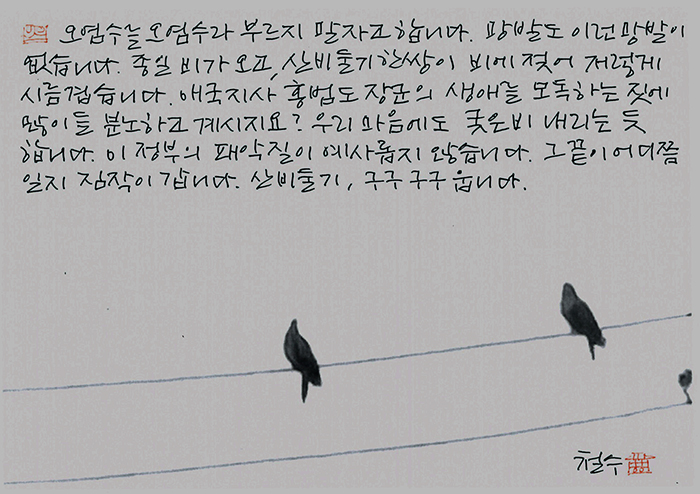 오염수를 오염수라 부르지 말자고 합니다. 망발도 이런 망발이
없습니다. 종일 비가 오고, 산비둘기 한쌍이 비에 젖어 저렇게
시름겹습니다. 애국지사 홍범도 장군의 생애를 모독하는 짓에
많이들 분노하고 계시지요? 우리 마음에도 궂은비 내리는 듯
합니다. 이 정부의 패악질이 예사롭지 않습니다. 그 끝이 어디쯤
일지 짐작이 갑니다. 산비둘기, 구구 구구 웁니다.
철수